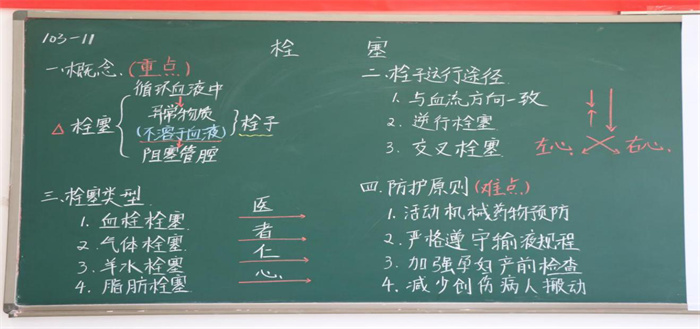 103-11
栓 塞
一.概念.(重点)
循环血液中
异常物质
△ 栓塞 (不溶于血液) 栓子
阻塞管腔
二.栓子运行途径
1.与血流方向一致
2.逆行栓塞
3.交叉栓塞
左心. 右心.
三.栓塞类型
1.血栓栓塞
2.气体栓塞
3.羊水栓塞
4.脂肪栓塞
医
者
仁
心.
四.防护原则(难点)
1.活动机械药物预防
2.严格遵守输液规程
3.加强孕妇产前检查
4.减少创伤病人搬动